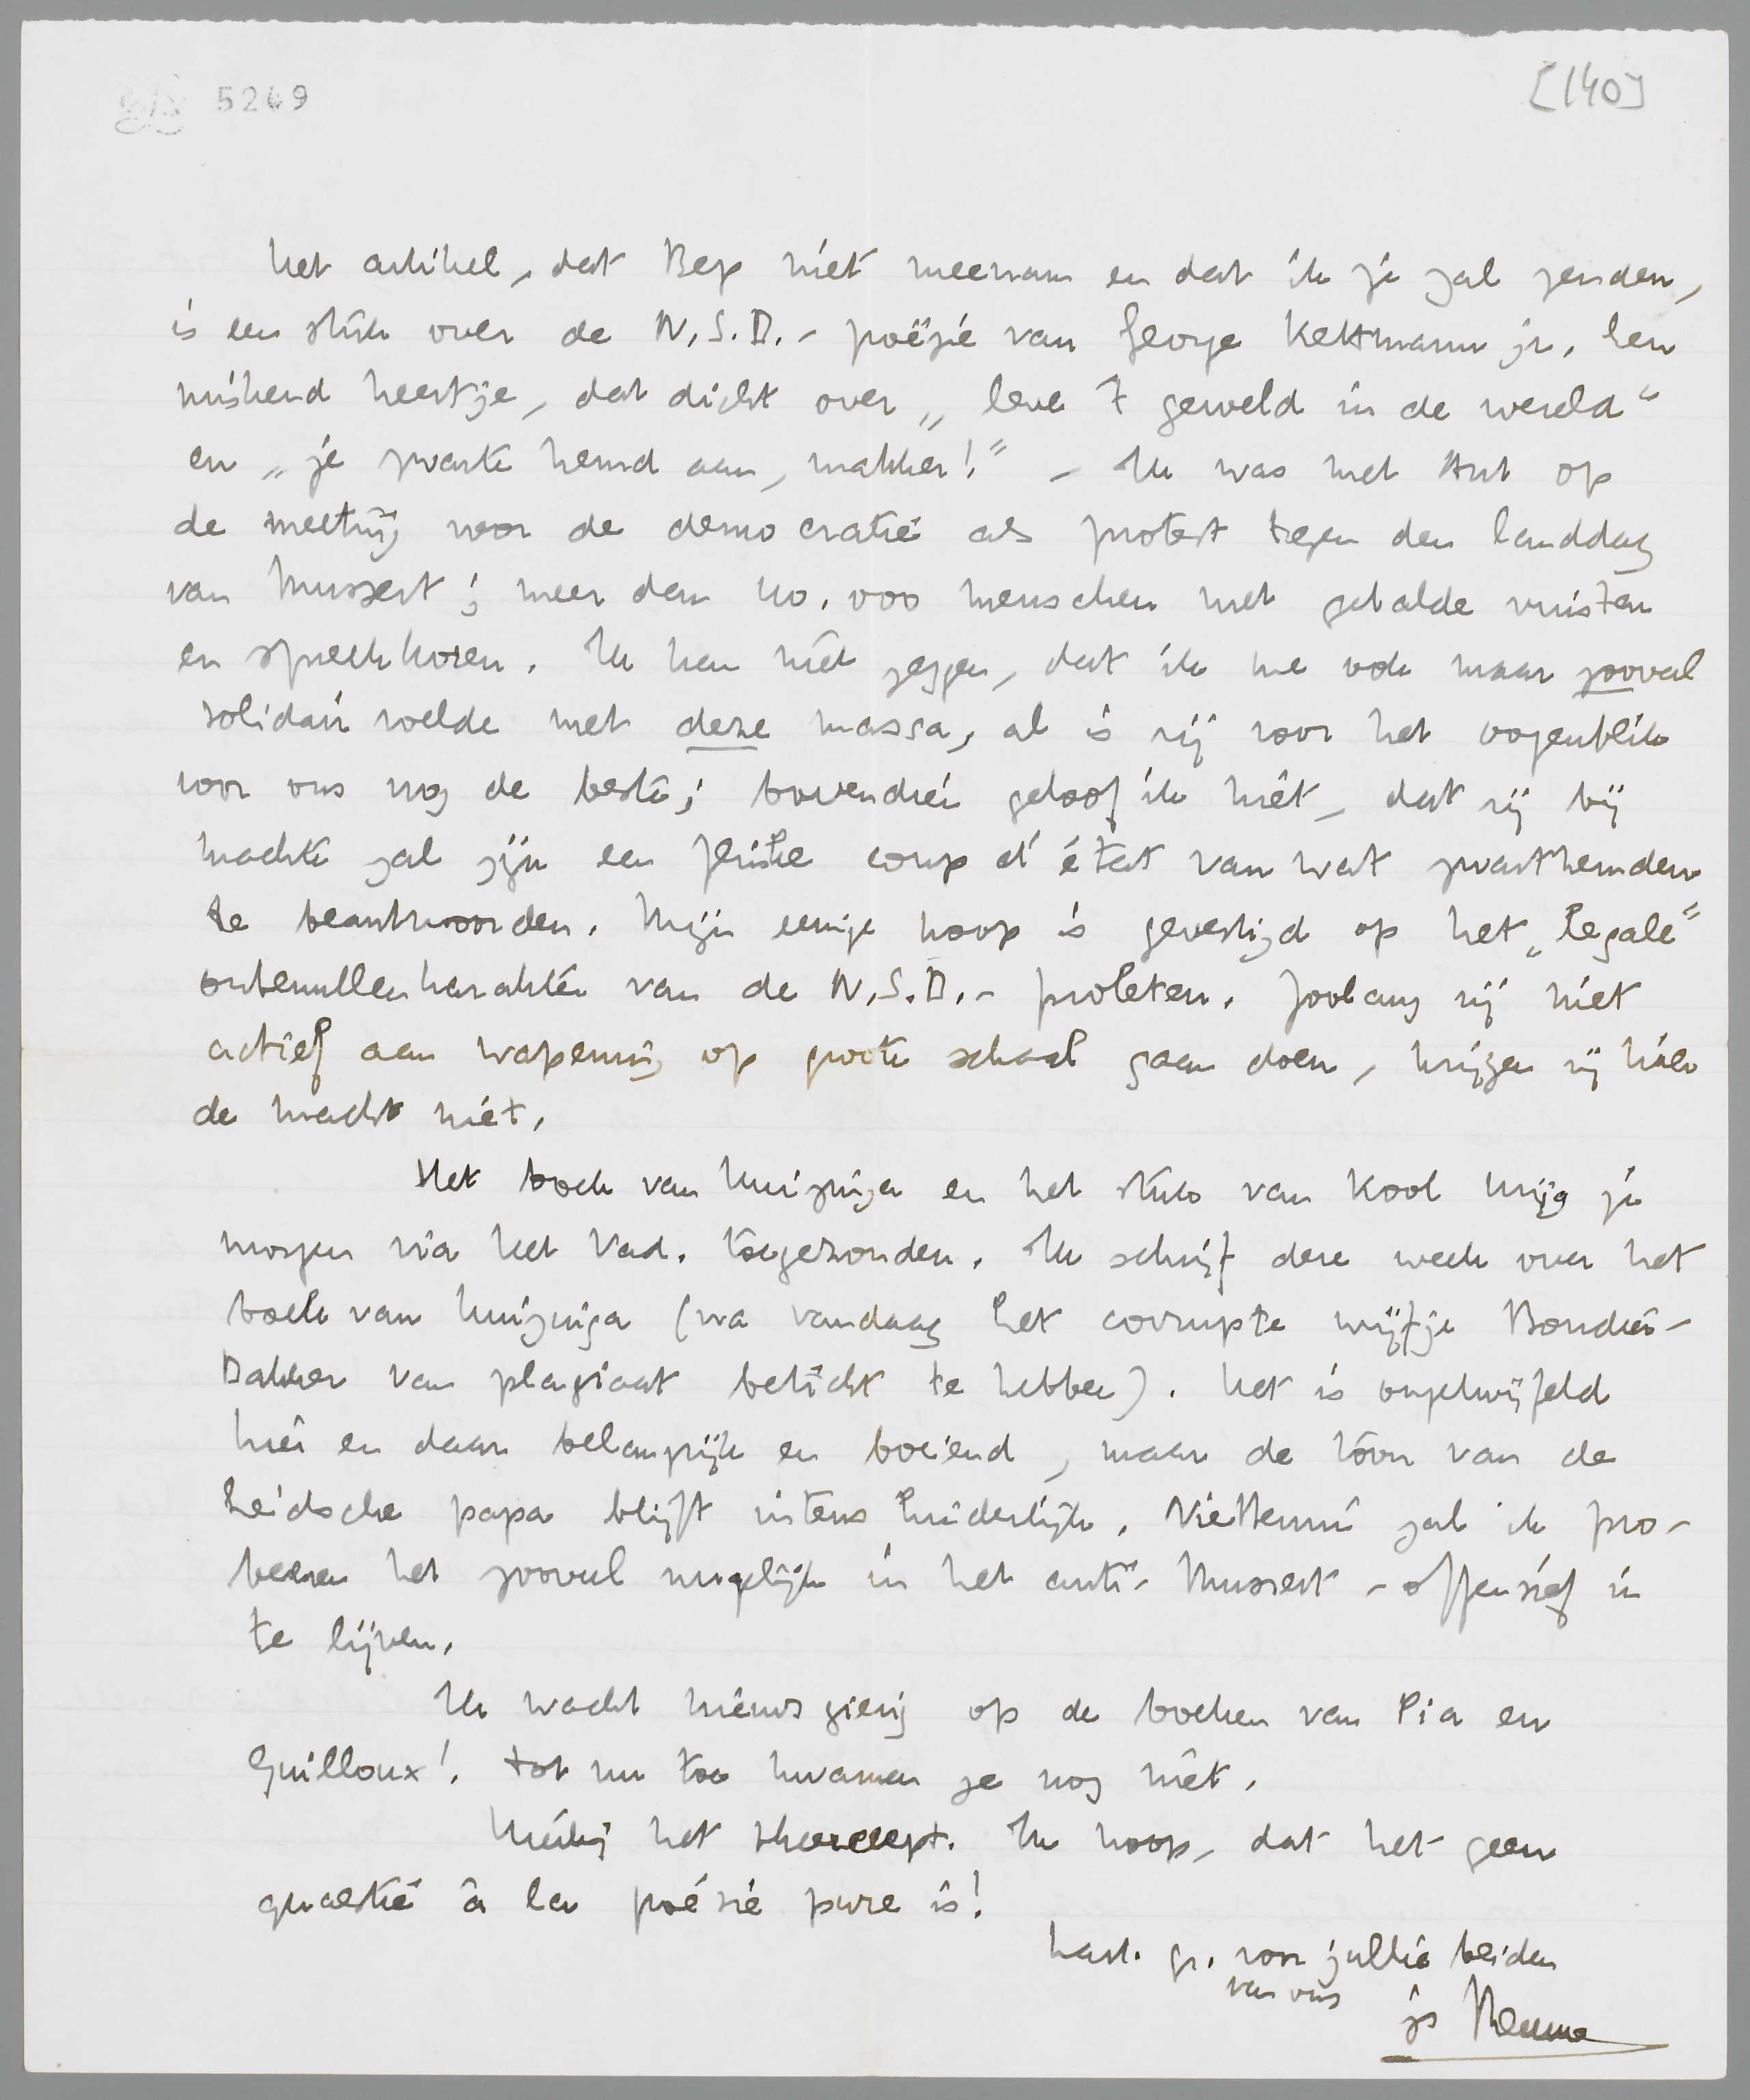 5249
[140]
Het artikel, dat Bep niet meenam en dat ik je zal zenden,
is een stuk over de N.S.B.-poëzie van George Kettmann jr. Een
miskend heertje, dat dicht over „leve 't geweld in de wereld"
en „je zwarte hemd aan, makker!" - Ik was met Ant op
de meeting voor de democratie als protest tegen den landdag
van Mussert; meer dan 40.000 menschen met gebalde vuisten
en spreekkoren. Ik kan niet zeggen, dat ik me ook maar zooveel
solidair voelde met deze massa, al is zij voor het oogenblik
voor ons nog de beste; bovendien geloof ik niet, dat zij bij
machte zal zijn een flinke coup d'état van wat zwarthemden
te beantwoorden. Mijn eenige hoop is gevestigd op het „legale"
onbenullenkarakter van de N.S.B.-proleten. Zoolang zij niet
actief aan wapening op groote schaal gaan doen, krijgen zij hier
de macht niet.
Het boek van Huizinga en het stuk van Kool krijg je
morgen via Het Vad. toegezonden. Ik schrijf deze week over het
boek van Huizinga (na vandaag het corrupte wijfje Boudier-
Bakker van plagiaat beticht te hebben). Het is ongetwijfeld
hier en daar belangrijk en boeiend, maar de toon van de
Leidsche papa blijft intens hinderlijk. Niettemin zal ik pro-
beeren het zooveel mogelijk in het anti-Mussert-offensief in
te lijven.
Ik wacht nieuwsgierig op de boeken van Pia en
Guilloux! Tot nu toe kwamen ze nog niet.
Hierbij het recept. Ik hoop, dat het geen
quaestie à la poésie pure is!
hart. gr. voor jullie beiden
van ons
je Menno